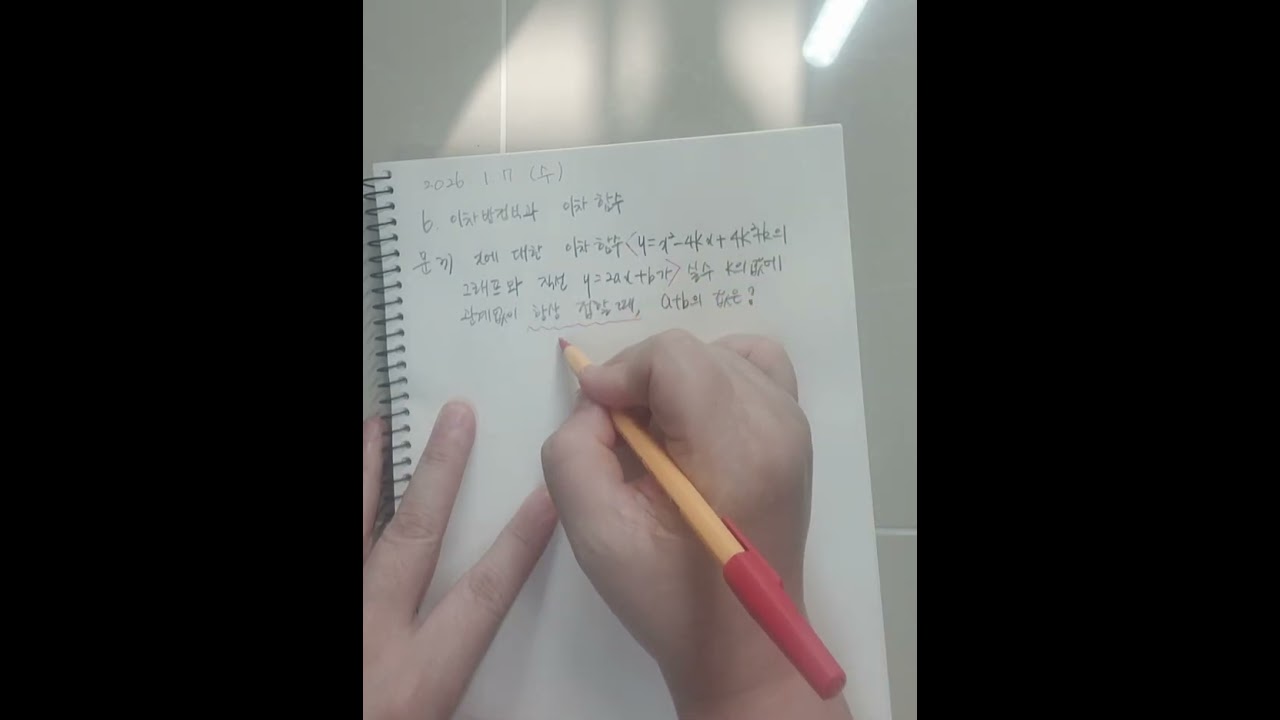 2026 1. 7 (수)
6. 이차방정식과 이차함수
문제) x에 대한 이차함수 y=x²-4kx+4k²+k의
그래프와 직선 y=2ax+b가 실수 k의 값에
관계없이 항상 접할 때, a+b의 값은?